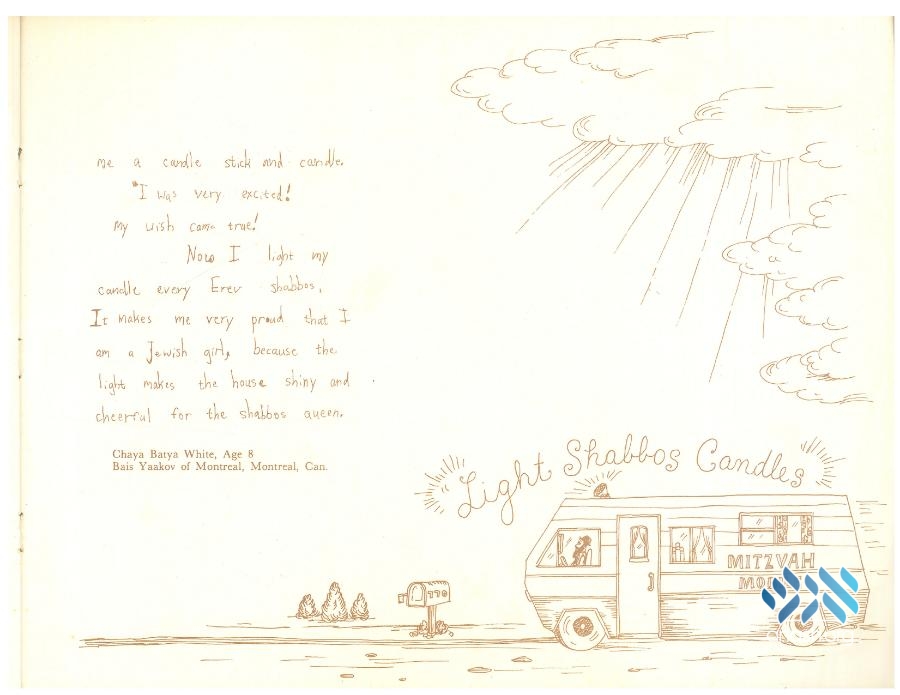 me a candle stick and candle.
"I was very excited!
My wish came true!
Now I light my
candle every Erev shabbos.
It makes me very proud that I
am a Jewish girl, because the
light makes the house shiny and
cheerful for the shabbos queen.
Chaya Batya White, Age 8
Bais Yaakov of Montreal, Montreal, Can.
Light Shabbos Candles
MITZVAH
770